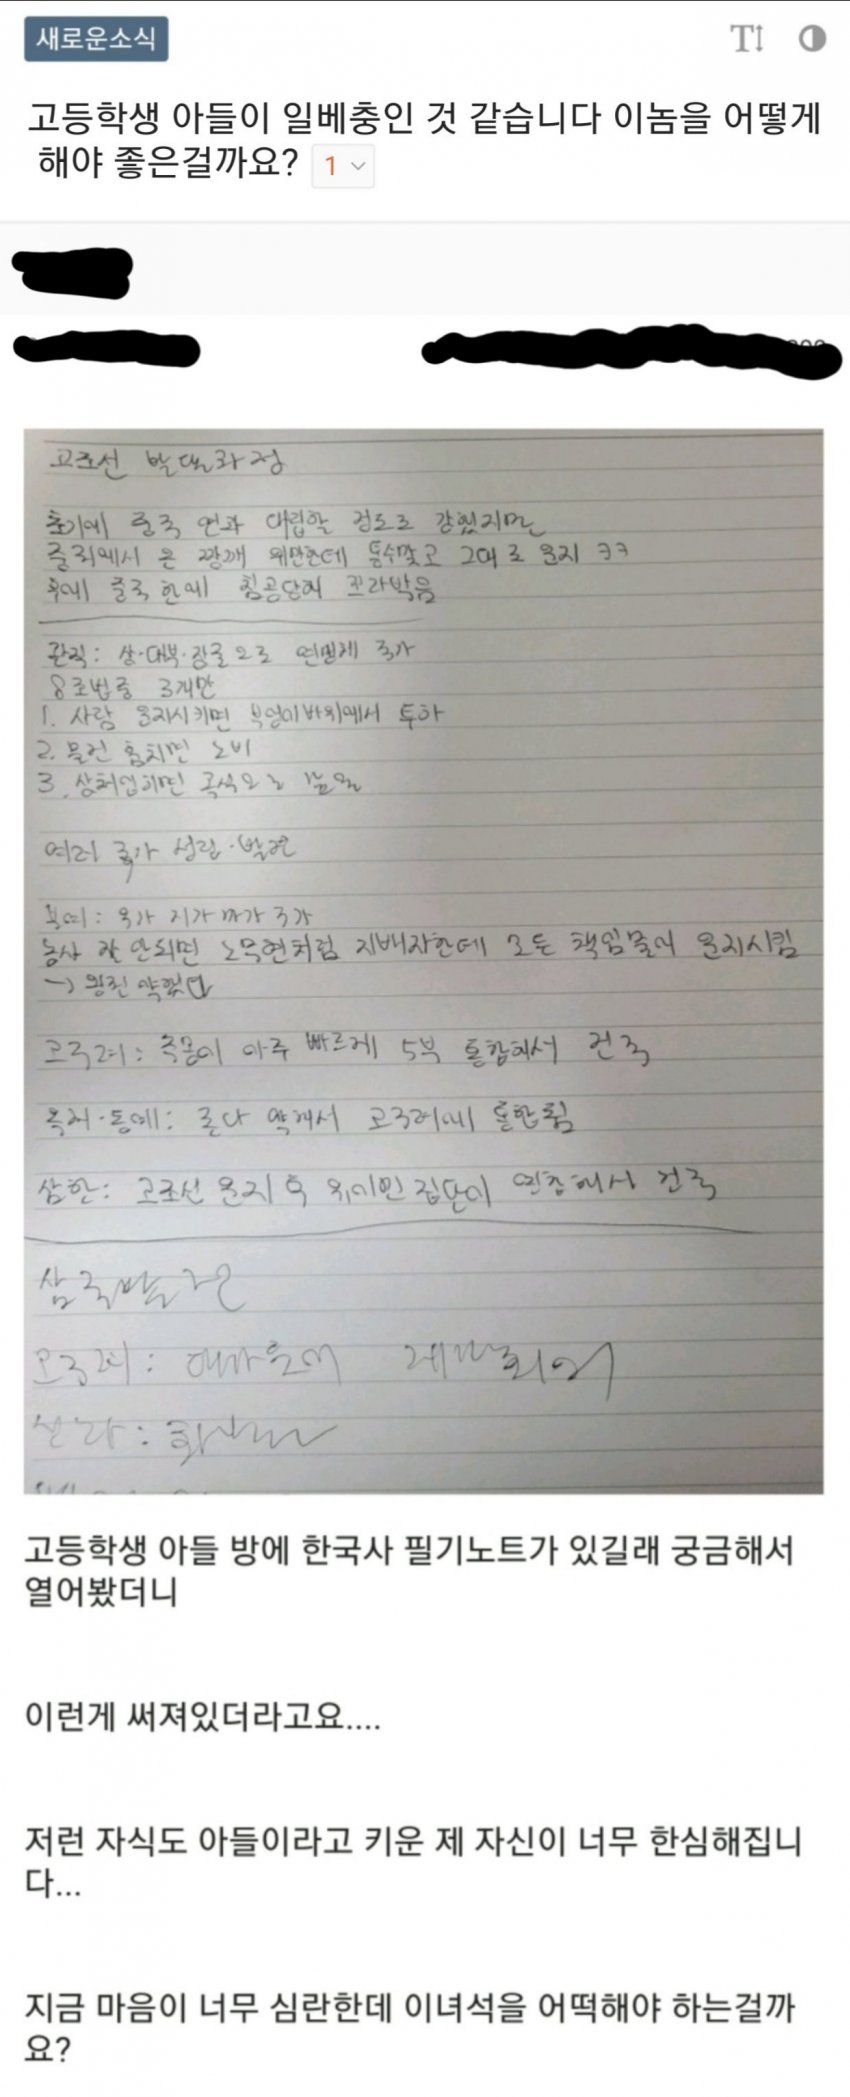 새로운소식
고등학생 아들이 일베충인 것 같습니다 이놈을 어떻게
해야 좋은걸까요? 1
고조선 발달과정
초기에 중국 연과 대립할 정도로 강했지만
중국에서 온 짱깨 위만한테 통수맞고 그대로 운지 ㅋㅋ
후에 중국 한에 침공당해 꼬라박음
관직: 상·대부·장군으로 연맹체 국가
8조법중 3개만
1. 사람 운지시키면 부엉이바위에서 투하
2. 물건 훔치면 노비
3. 상처입히면 곡식으로
여러 국가 성립·발전
부여: 우가 지가 마가 구가
농사 잘 안되면 노무현처럼 지배자한테 모든 책임물어 운지시킴
→ 왕권 약했다
고구려: 주몽이 아주 빠르게 5부 통합해서 건국
옥저·동예: 둘다 약해서 고구려에 통합됨
삼한: 고조선 운지 후 유이민 집단이 연합해서 건국
삼국발전
고구려:
신라:
고등학생 아들 방에 한국사 필기노트가 있길래 궁금해서
열어봤더니
이런게 써져있더라고요....
저런 자식도 아들이라고 키운 제 자신이 너무 한심해집니
다...
지금 마음이 너무 심란한데 이녀석을 어떡해야 하는걸까
요?